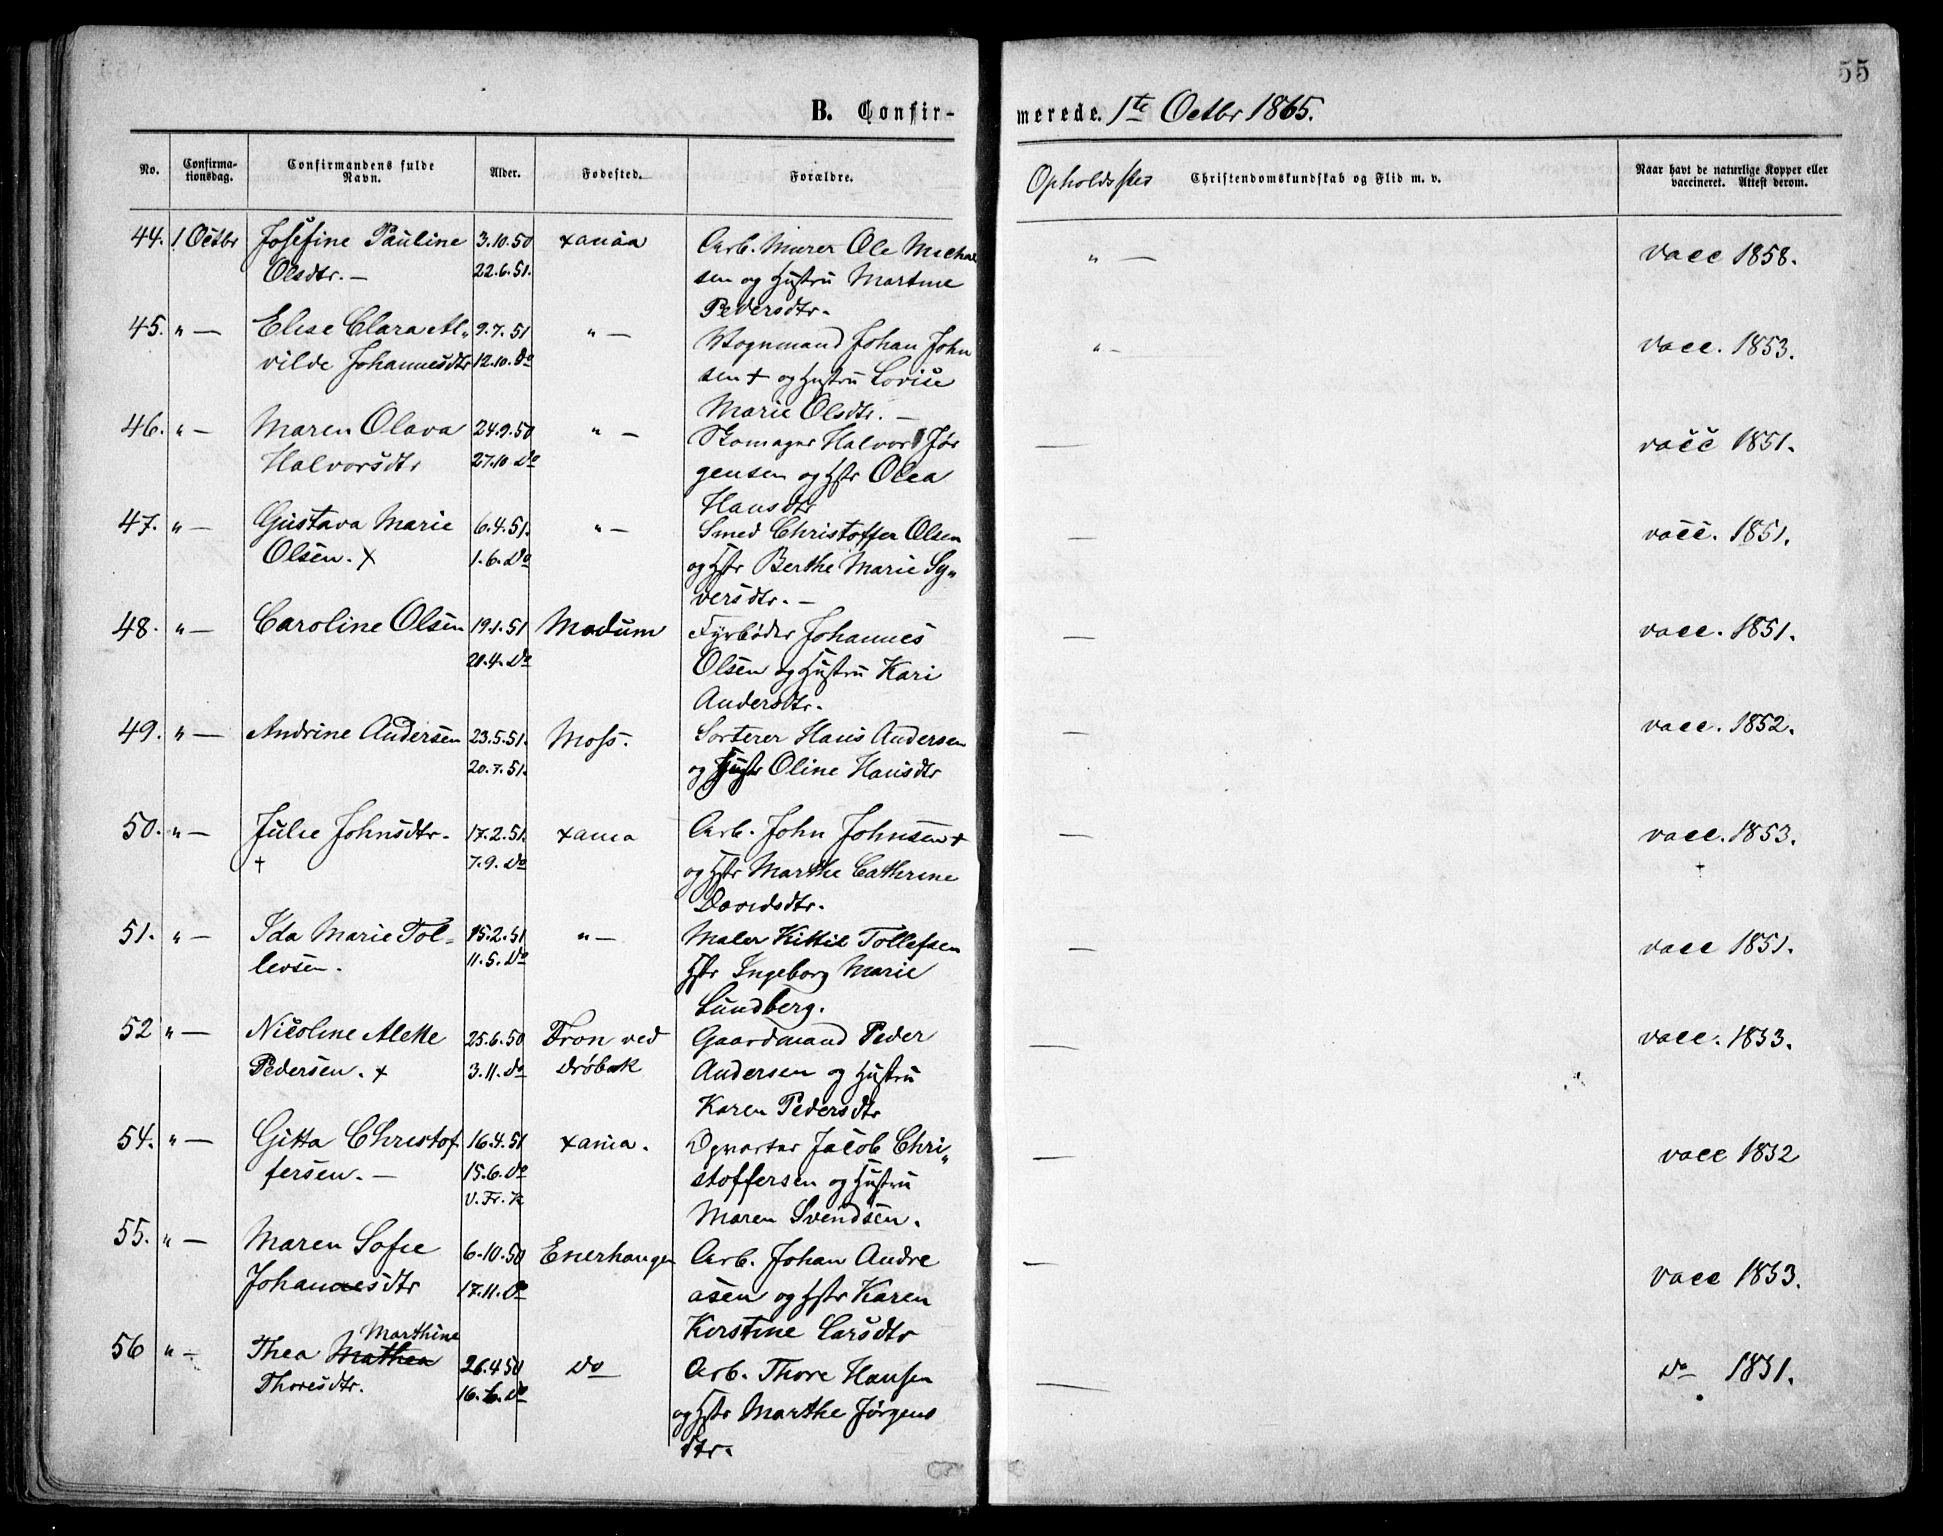 55
B. Confir-
merede. 1te Octbr 1865.
No.
Confirma-
tionsdag.
Confirmandens fulde
Navn.
Alder.
Fødested.
Forældre.
Opholdssted
Christendomskundskab og Flid m. v.
Naar havt de naturlige Kopper eller
vaccineret. Attest derom.
44. 1 Octbr Josefine Pauline 3.10.50 xania Arb. Murer Ole Michael " — vacc 1858.
Olsdtr. — 22.6.51. sen og Hustru Martine
Pedersdtr.
45. " — Elise Clara Al- 9.7.51 " — Vognmand Johan John " — vacc. 1853.
vilde Johannesdtr 12.10. Do sen + og Hustru Lovise
Marie Olsdtr. —
46. " — Maren Olava 24.9.50 " — Skomager Halvor Jør — vacc 1851.
Halvorsdtr 27.10 Do gensen og Hstr Olea
Hansdtr
47. " — Gustava Marie 6.4.51. " — Smed Christoffer Olsen — vacc. 1851.
Olsen. x 1.6. Do og Hstr Berthe Marie Sy-
versdtr. —
48. " — Caroline Olsen 19.1.51 Modum Fyrbøder Johannes — vacc. 1851.
21.4. Do Olsen og Hustru Kari
Andersdtr.
49. " — Andrine Andersen 23.5.51. Moss. Sorterer Hans Andersen — vacc. 1852.
20.7.51. og Hustr Oline Hansdtr
50. " — Julie Johnsdtr. 17.2.51. xania Arb. John Johnsen + — vacc. 1853.
+ 7.9. Do og Hstr Marthe Cathrine +
Davidsdtr.
51. " — Ida Marie Tol- 15.2.51 " — Maler Kittil Tollefsen — vacc 1851.
levsen. 11.5. Do Hstr Ingeborg Marie
Lundberg.
52 " — Nicoline Alette 25.6.50 Fron ved Gaardmand Peder — vacc. 1853.
Pedersen. x 3.11. Do Drøbak Andersen og Hustru
Karen Pedersdtr
54. " — Gitta Christof 16.4.51 xania. Opvarter Jacob Chri- — vacc 1852
fersen. — 15.6. Do stoffersen og Hustru
V. Fr. K Maren Svendsen.
55. " — Maren Sofie 6.10.50 Enerhaugen Arb. Johan Andre — vacc 1853.
Johannesdtr 17.11. Do asen og Hstr Karen
Kirstine Larsdtr
Marthine
56 " — Thea Mathea 26.4.50 Do Arb. Thore Hansen — Do 1851.
Thoresdtr. 16.6. Do og Hstr Marthe Jørgens
dtr.